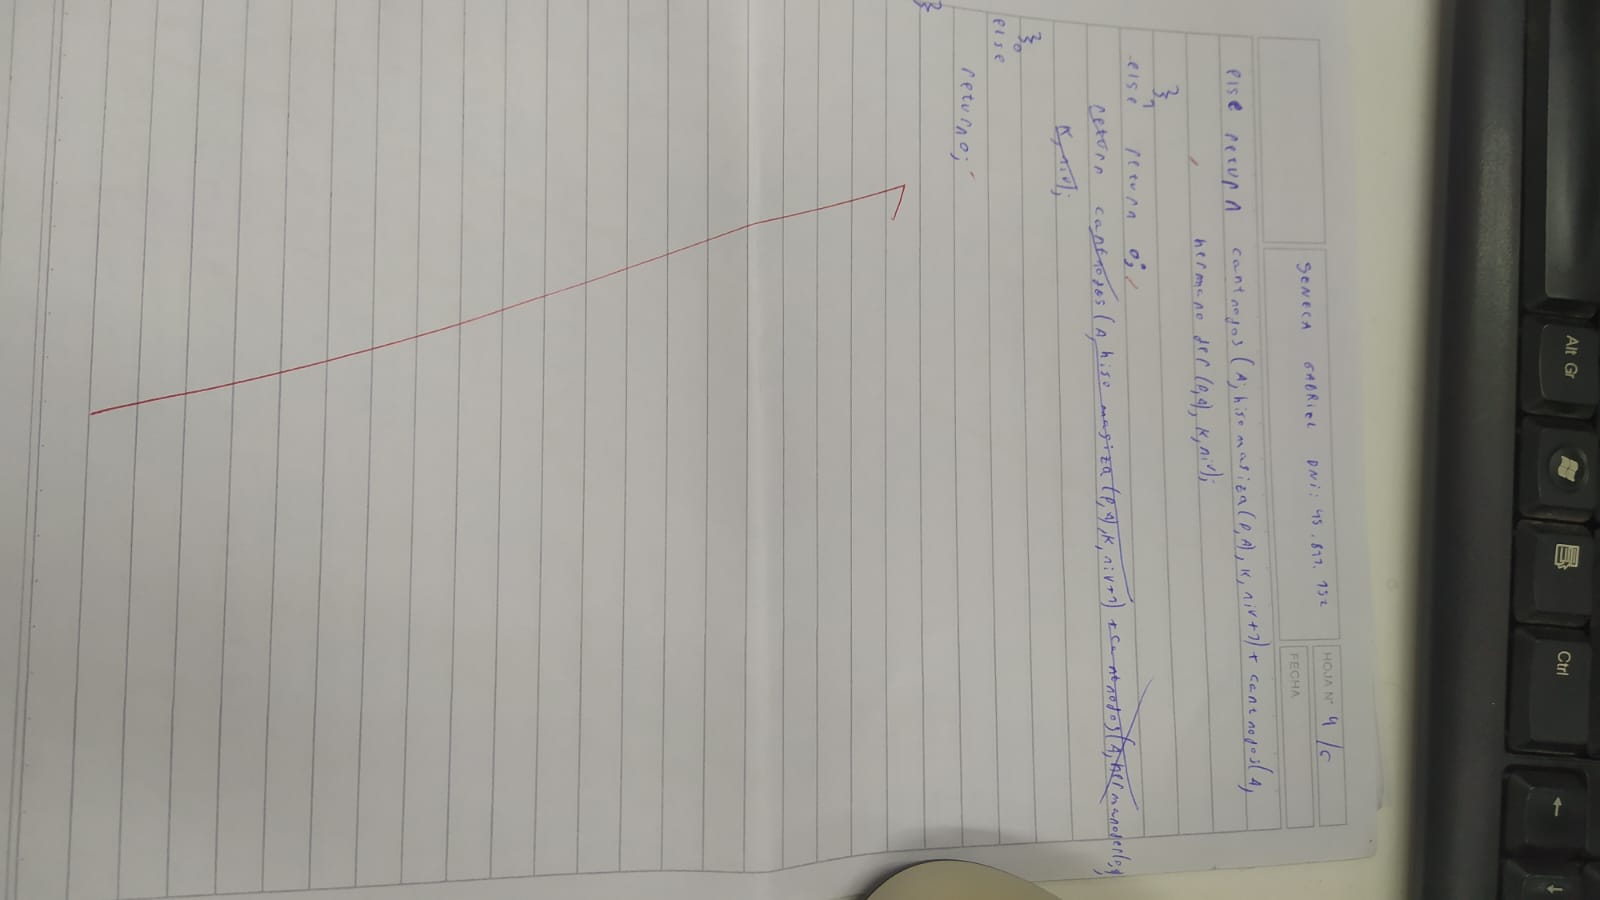 Alt Gr
Ctrl
←
↓
SENECA GABRIEL DNi: 45.877.752
HOJA N° 4/6
FECHA
else return cantnodos(A, hijo masiza(P,A), K, niv+1) + cantnodos(A,
hermano der(P,A), K, niv);
}1
else return 0;
return cantnodos(A, hijo masiza(P,A), K, niv+1) + cantnodos(A, hermanoder(
K, niv);
}0
else
return 0;
}